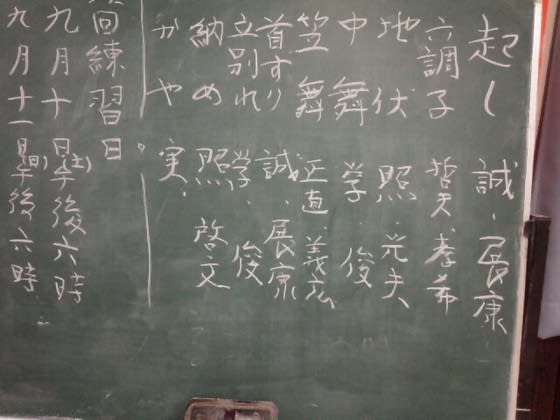 起し 誠・展康
六調子 哲夫 孝希
地伏 照・光夫
中舞 学 俊
笠舞 正直 義広
首すり 誠・展康
立別れ 学・俊
納め 照 啓文
かや 実・
回練習日。
九月十日(土)午後六時
九月十一日(日)午後六時